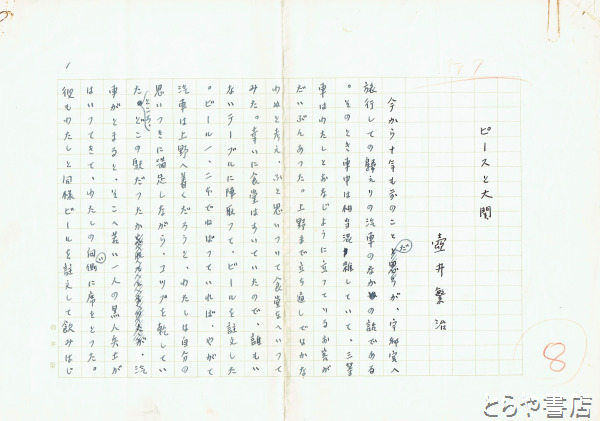 ピースと大関
壺井繁治
今から十年も前のことだが、宇都宮へ
旅行しての帰えりの汽車のなかの話である
。そのとき車中は相当混雑していて、三等
車はわたしとおなじように立っているお客が
だいぶんあった。上野まで立ち通しではかな
わぬと考え、ふと思いついて食堂車へいって
みた。幸いに食堂はすいていたので、誰もい
ないテーブルに陣取って、ビールを註文した
。ビール一、二本でねばっていれば、やがて
汽車は上野へ着くだろうと、わたしは自分の
思いつきに満足しながら、コップを乾してい
た。ところがどこの駅だったか、汽
車がとまると、そこへ若い一人の黒人兵士が
はいってきて、わたしの向い側に席をとった。
彼もわたしと同様ビールを註文して飲みはじ
1
8
とらや書店